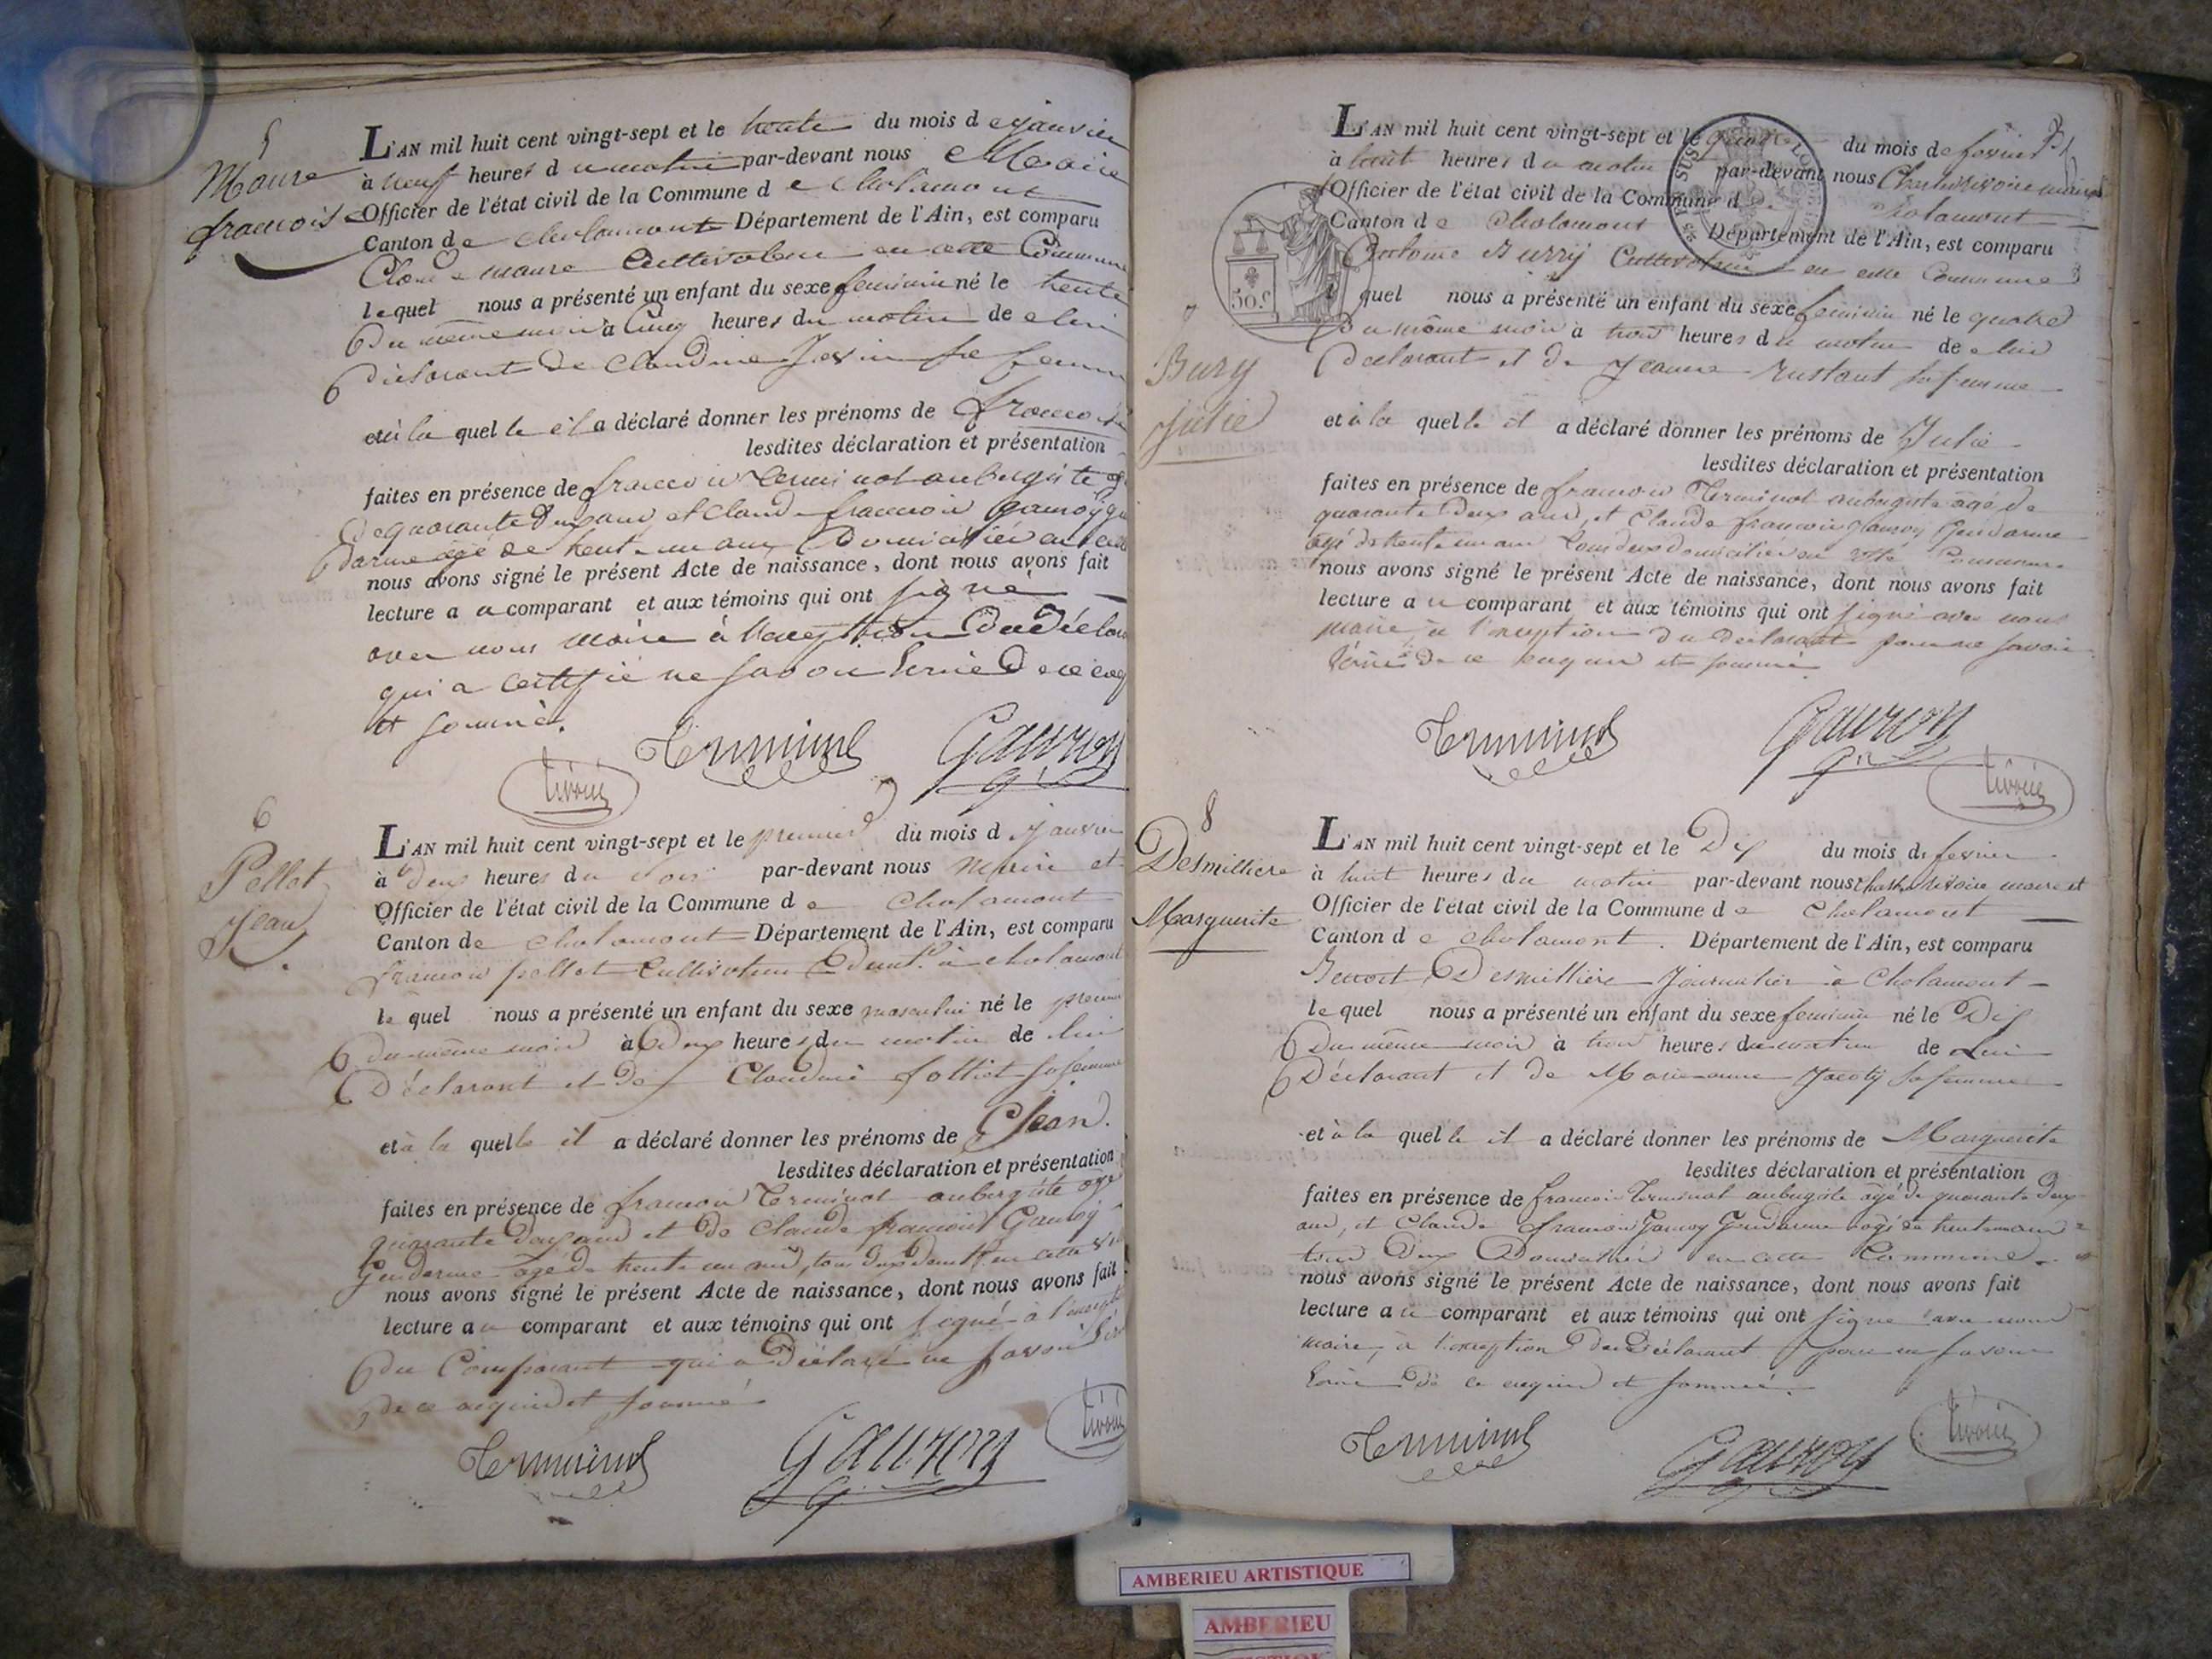 5
Maure
françoise
L'AN mil huit cent vingt-sept et le trente du mois de janvier
à neuf heures du matin par-devant nous Maire
Officier de l'état civil de la Commune de Cholamont
Canton de Cholamont Département de l'Ain, est comparu
Claude maure Cultivateur en cette Commune
lequel nous a présenté un enfant du sexe feminin né le trente
Du meme mois à Cinq heures du matin de lui
Declarant de Claudine sa femme
et à la quelle il a déclaré donner les prénoms de françoise
lesdites déclaration et présentation
faites en présence de francois Terminot aubergiste
de quarante deux ans, et Claude francois Gauroy gen
darme agé de trente un ans Domiciliés en
nous avons signé le présent Acte de naissance, dont nous avons fait
lecture au comparant et aux témoins qui ont signé
avec nous maire à l'exception du déclarant
qui a certifié ne savoir Ecrire de ce enq
et sommé.
Terminot Gauroy
Rivoire
6
Pellot
Jean
L'AN mil huit cent vingt-sept et le premier du mois d janvier
à deux heures du soir par-devant nous Maire et
Officier de l'état civil de la Commune de Cholamont
Canton de Cholamont Département de l'Ain, est comparu
francois pellot Cultivateur à cholamont
le quel nous a présenté un enfant du sexe masculin né le premier
du même mois à Deux heures du matin de lui
Déclarant et de Claudine sa femme
et à la quelle il a déclaré donner les prénoms de Jean.
lesdites déclaration et présentation
faites en présence de francois Terminot aubergiste agé
quarante deux ans et de Claude francois Gauroy
Gendarme agé de trente un ans, tous deux en cette
nous avons signé le présent Acte de naissance, dont nous avons fait
lecture au comparant et aux témoins qui ont signé à l'exception
du Comparant qui a Déclaré ne savoir
de ce enquis et sommé
Terminot Gauroy Rivoire
L'AN mil huit cent vingt-sept et le quatre du mois de fevrier
à huit heures du matin par-devant nous Charles Rivoire maire
Officier de l'état civil de la Commune de Cholamont
Canton de Cholamont Département de l'Ain, est comparu
50.c
Antoine Burry Cultivateur en cette Commune
quel nous a présenté un enfant du sexe feminin né le quatre
7
Bury
Julie
Du même mois à trois heures du matin de lui
Declarant et de Jeanne Rustant sa femme
et à la quelle il a déclaré donner les prénoms de Julie
lesdites déclaration et présentation
faites en présence de francois Terminot aubergiste agé de
quarante deux ans, et Claude francois Gauroy Gendarme
agé de trente un ans tous deux domiciliés en cette Commune
nous avons signé le présent Acte de naissance, dont nous avons fait
lecture au comparant et aux témoins qui ont signé avec nous
maire, à l'exception du declarant pour ne savoir
Ecrire de ce enquis et sommé
Terminot Gauroy
Rivoire
8
Desmilliere
Marguerite
L'AN mil huit cent vingt-sept et le Dix du mois de fevrier
à huit heures du matin par-devant nous Charles Rivoire maire et
Officier de l'état civil de la Commune de Cholamont
Canton de Cholamont. Département de l'Ain, est comparu
Benoit Desmilliere Journalier à Cholamont
lequel nous a présenté un enfant du sexe feminin né le Dix
Du même mois à trois heures du matin de Lui
Déclarant et de Marie anne Jacoty sa femme
et à la quelle il a déclaré donner les prénoms de Marguerite
lesdites déclaration et présentation
faites en présence de francois Terminot aubergiste agé de quarante deux
ans, et Claude francois Gauroy Gendarme agé de trente un ans
tous Deux Domiciliés en cette Commune
nous avons signé le présent Acte de naissance, dont nous avons fait
lecture au comparant et aux témoins qui ont signé avec nous
maire, à l'exception du Déclarant pour ne savoir
Ecrire de ce enquis et sommé.
Terminot Gauroy Rivoire
AMBERIEU ARTISTIQUE
AMBERIEU